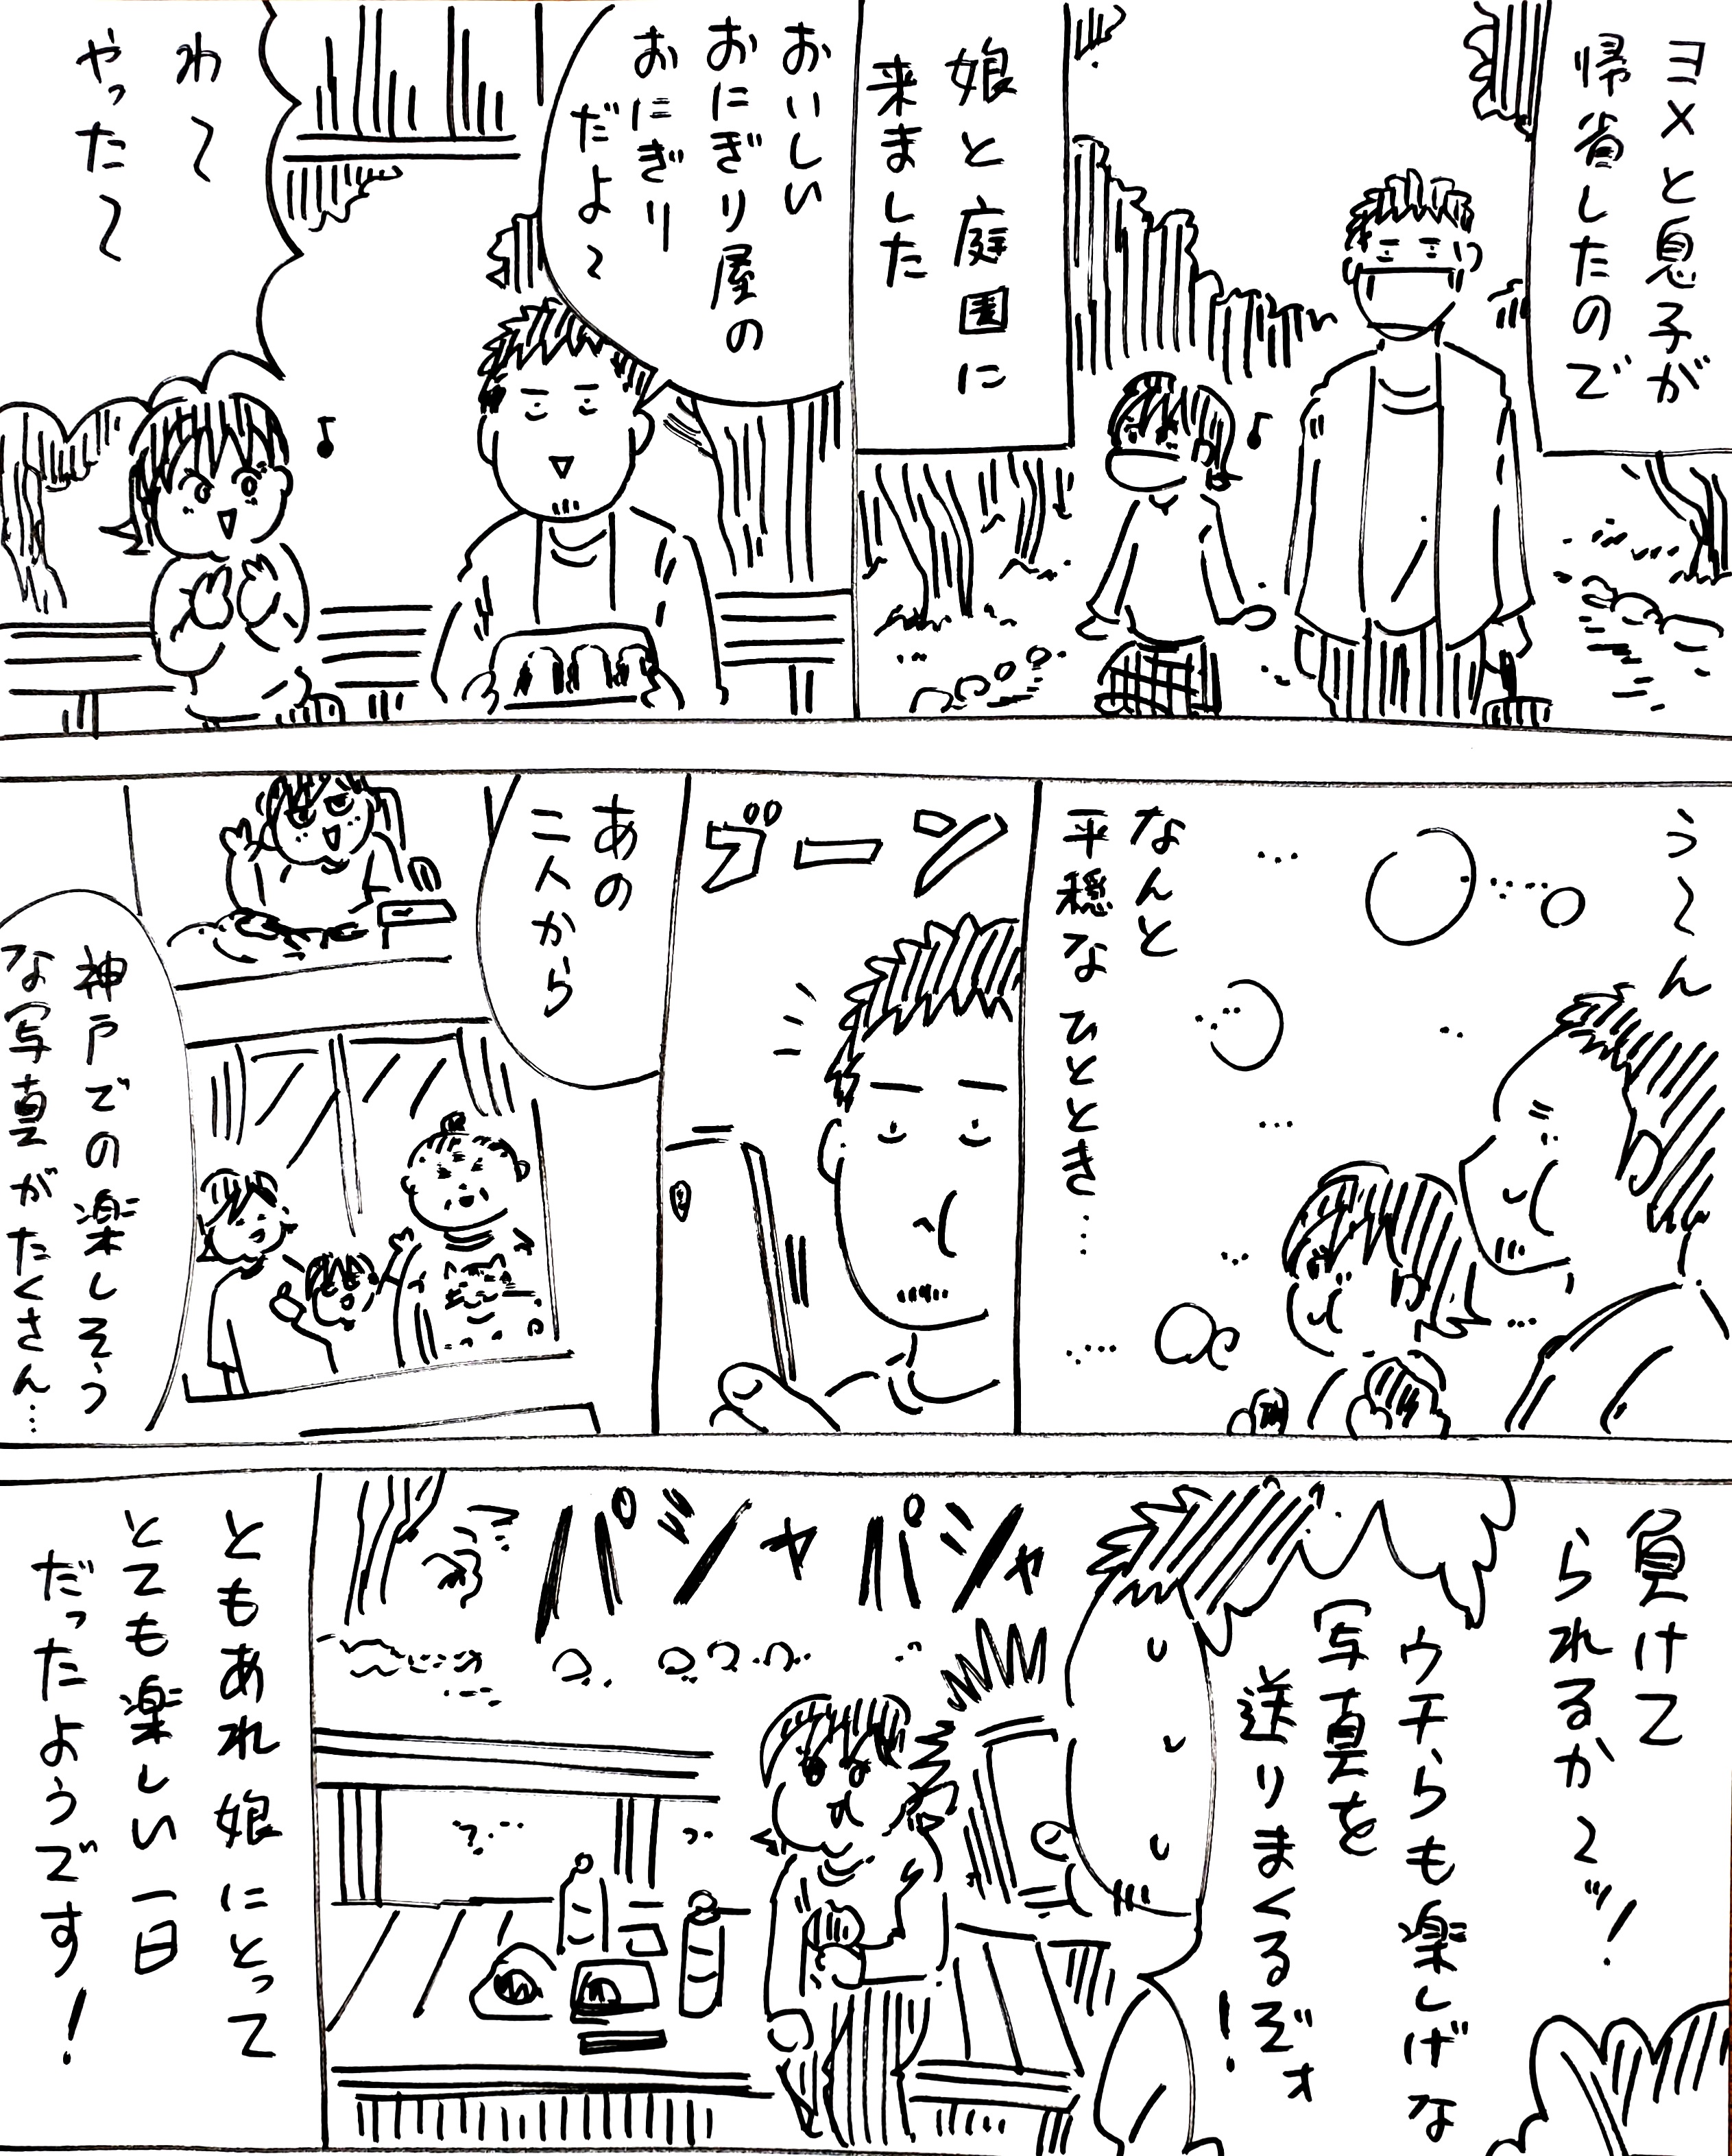 ヨメと息子が
帰省したので
娘と庭園に
来ました
おいしい
おにぎり屋の
おにぎり
だよ～
わ～
やった～
う～ん
なんと
平穏なひととき…
ブーン
あの
二人から
神戸での楽しそう
な写真がたくさん…
負けて
られるか～ッ!
ウチらも楽しげな
写真を
送りまくるぞォ
!
パシャパシャ
ともあれ娘にとって
とても楽しい一日
だったようです!